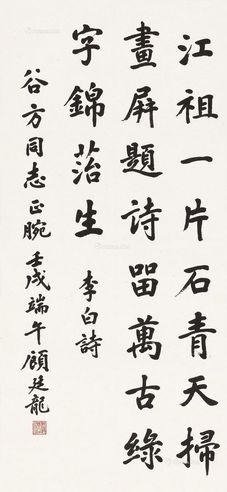 江祖一片石青天掃
畫屏題詩留萬古綠
字錦苔生 李白詩
谷方同志正腕壬戌端午顧廷龍